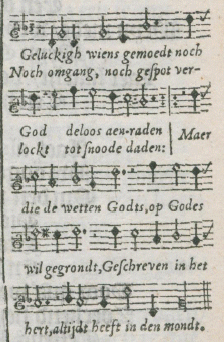 Geluckigh wiens gemoedt noch
Noch omgang, noch gespot ver-
God deloos aen-raden
lockt tot snoode daden:
Maer
die de wetten Godts, op Godes
wil gegrondt, Geschreven in het
hert, altijdt heeft in den mondt.